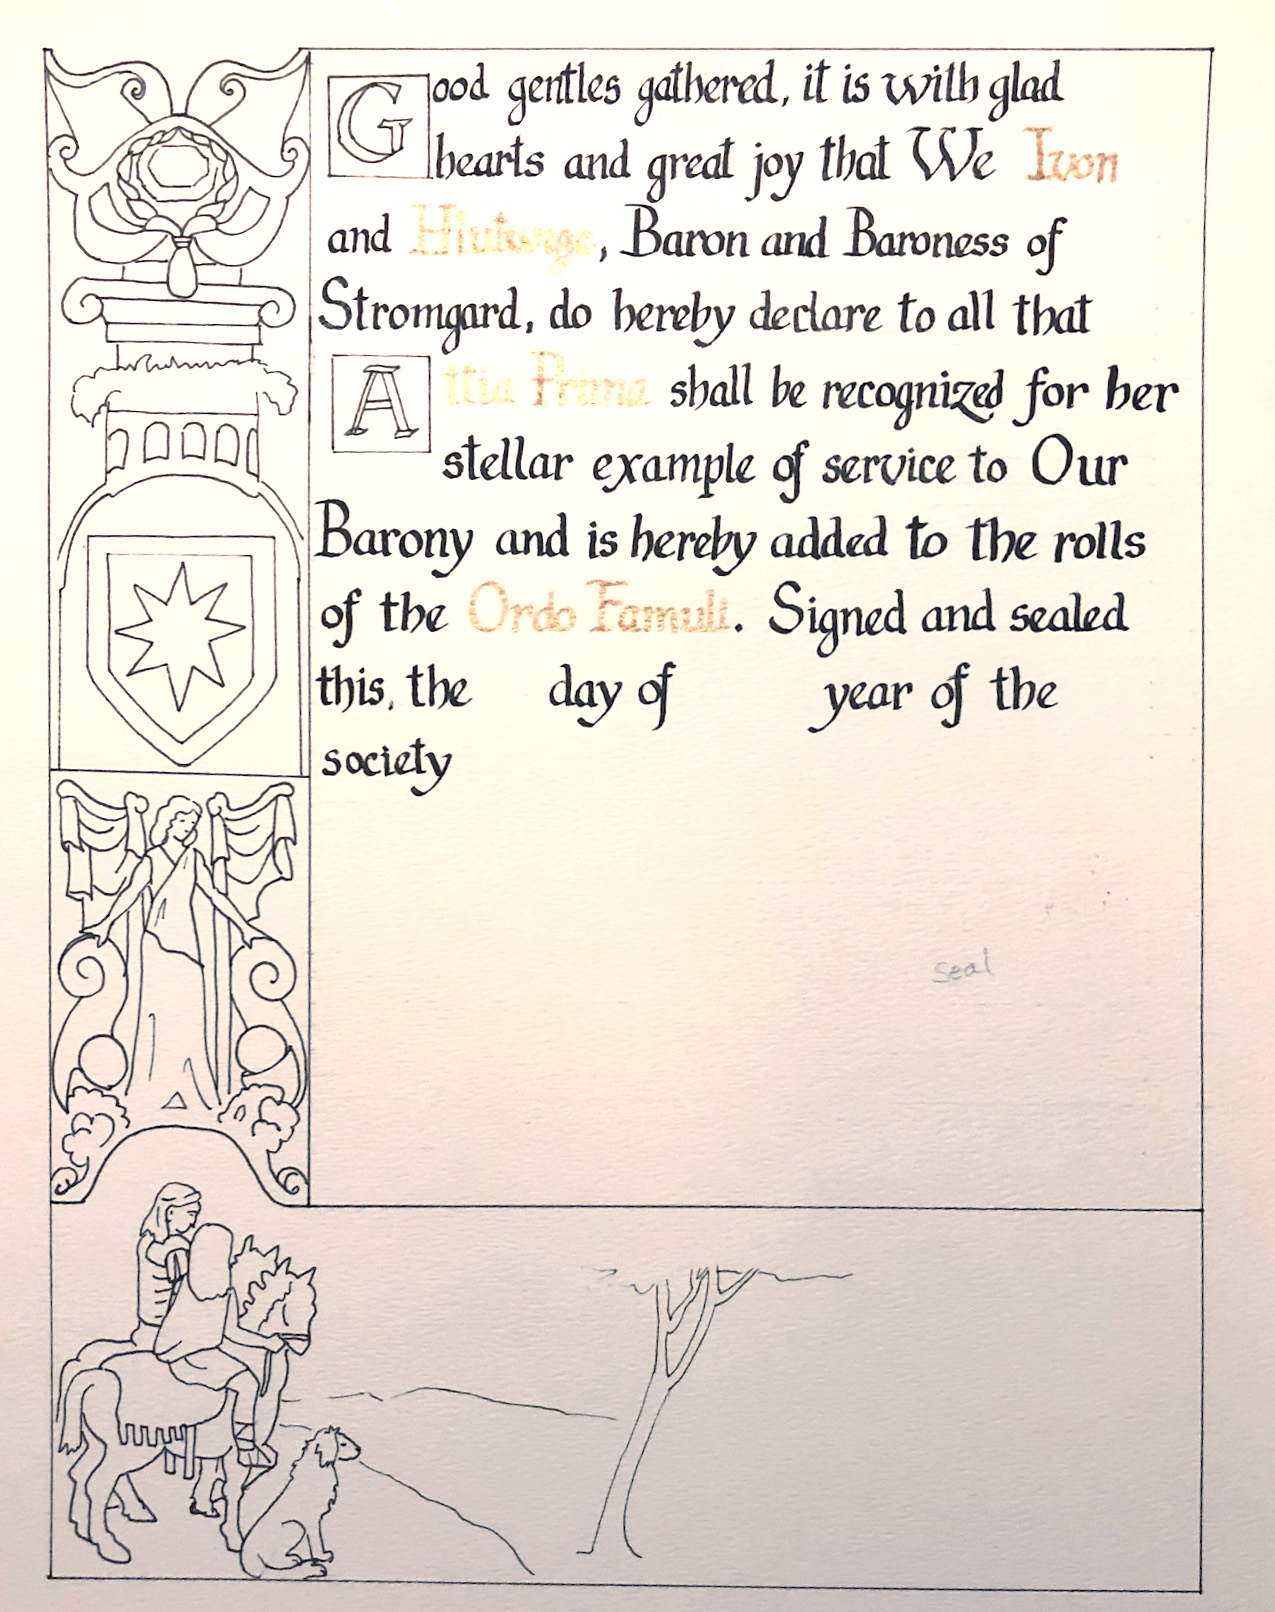 Good gentles gathered, it is with glad
hearts and great joy that We Ivon
and Hlutwige, Baron and Baroness of
Stromgard, do hereby declare to all that
Attia Prima shall be recognized for her
stellar example of service to Our
Barony and is hereby added to the rolls
of the Ordo Famuli. Signed and sealed
this, the day of year of the
society
seal